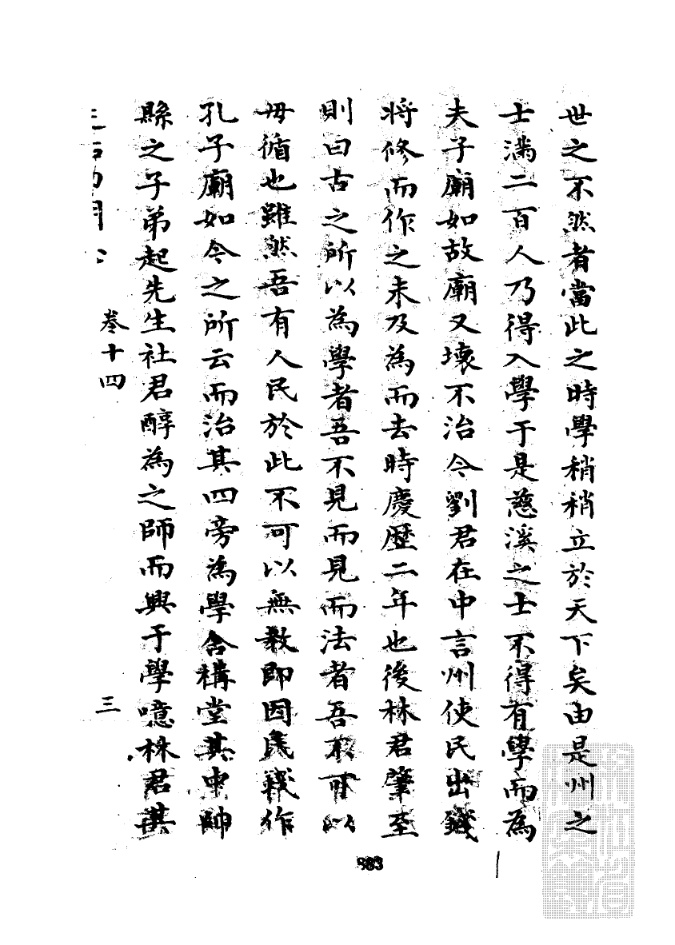 世之不然者當此之時學稍稍立於天下矣由是州之
士滿二百人乃得入學于是慈溪之士不得有學而為
夫子廟如故廟又壞不治令劉君在中言州使民出錢
將修而作之未及為而去時慶歷二年也後林君肇至
則曰古之所以為學者吾不見而見而法者吾不可以
毋循也雖然吾有人民於此不可以無教即因民錢作
孔子廟如令之所云而治其四旁為學舍構堂其中帥
縣之子弟起先生社君醇為之師而興于學噫林君其
卷十四
三
883